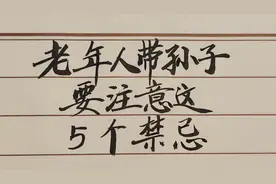 老年人带孙子
要注意这
5个禁忌